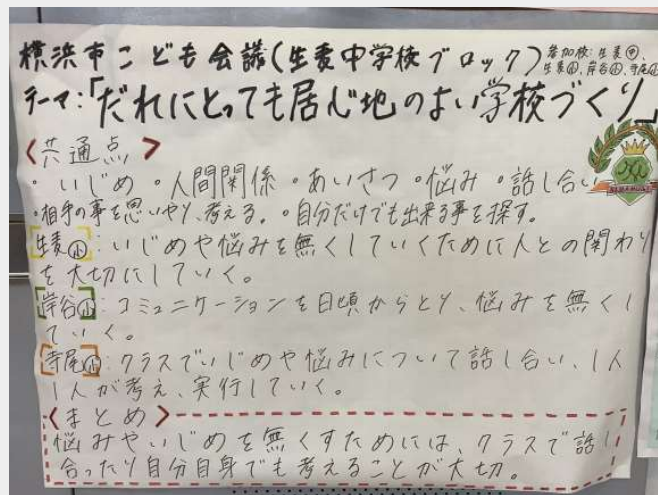 横浜市こども会議(生麦中学校ブロック)参加校:生麦中、
生麦小、岸谷小、寺尾小
テーマ:「だれにとっても居心地のよい学校づくり」
<共通点>
・いじめ・人間関係・あいさつ・悩み・話し合い
・相手の事を思いやり、考える。・自分だけでも出来る事を探す。
[生麦小]:いじめや悩みを無くしていくために人との関わり
を大切にしていく。
[岸谷小]:コミュニケーションを日頃からとり、悩みを無くし
ていく。
[寺尾小]:クラスでいじめや悩みについて話し合い、1人
1人が考え、実行していく。
<まとめ>
悩みやいじめを無くすためには、クラスで話し
合ったり自分自身でも考えることが大切。